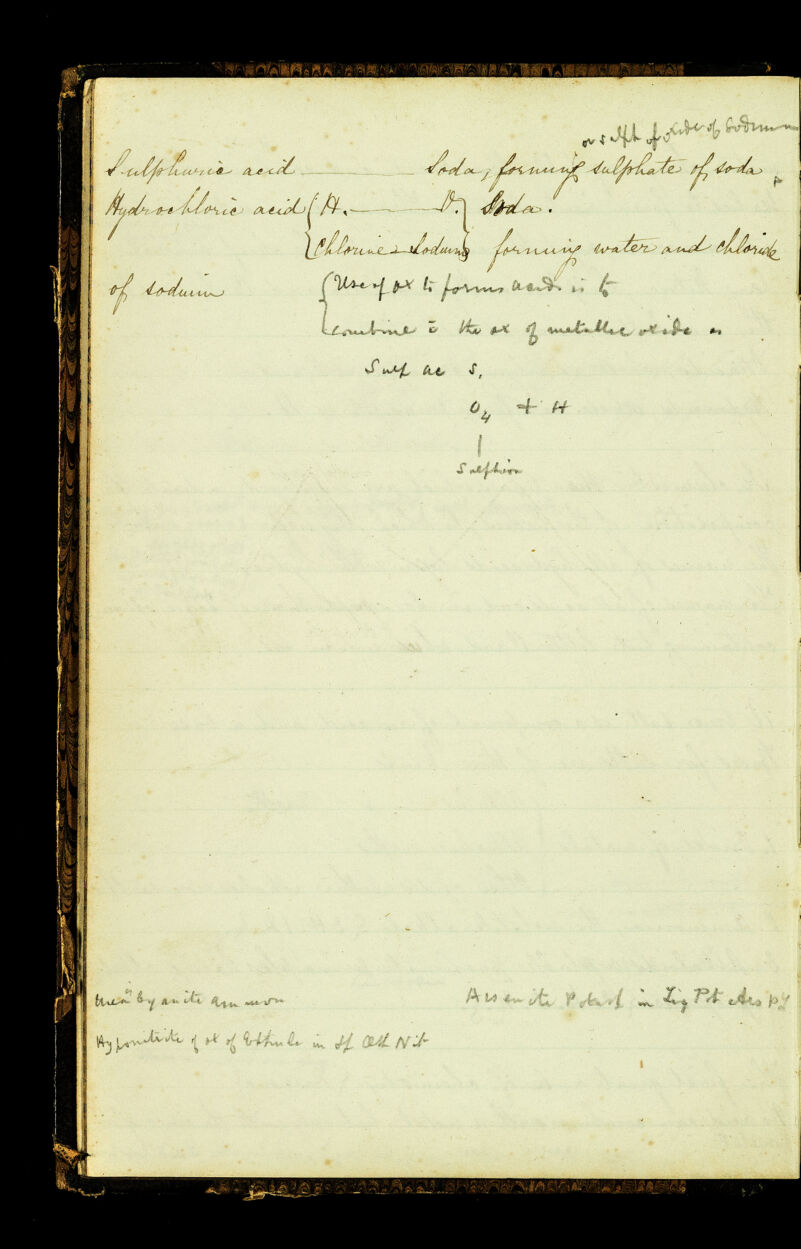 or sulph of oxide of Sodium
Sulphuric acid ——— Soda, forming sulphate of soda
Hydrochloric acid { H. ——— O. } Soda.
{ Chlorine - Sodium } forming water and chloride
of sodium
{ Use of ox to forms acids is to
combine c̄ the ox of metallic oxide as
Sulf ac S,
O4 + H
|
Sulphion
Urea Cyanite ammon
Arsenite Potash in Liq Pot Ars
Hyponitrite of ox of Ethule in Sp Æth Nit